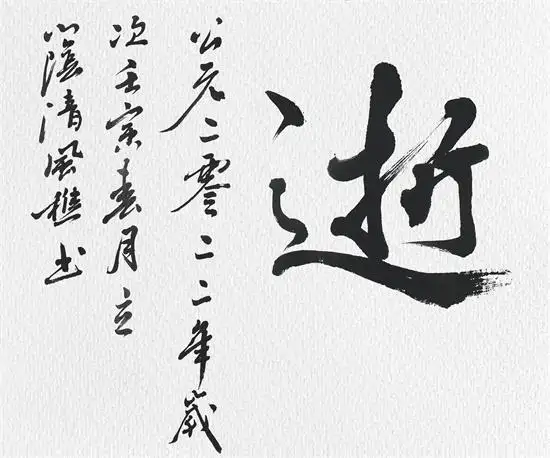 逝
公元二零二二年歲
次壬寅春月立
山陰清風樵書